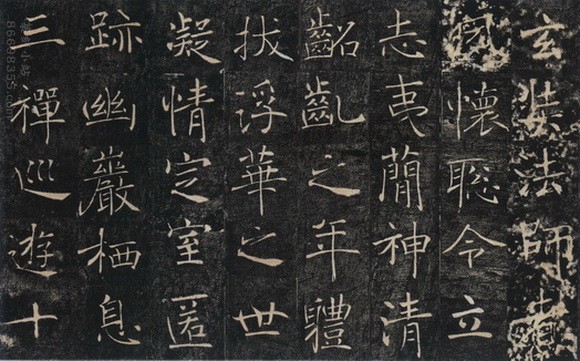 玄奘法師者
夙懷聡令立
志夷簡神清
齠齓之年體
拔浮華之世
凝情定室匿
跡幽巖栖息
三禪巡遊十